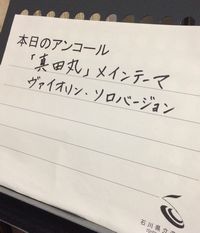 本日のアンコール
「真田丸」メインテーマ
ヴァイオリン・ソロバージョン
石川県立